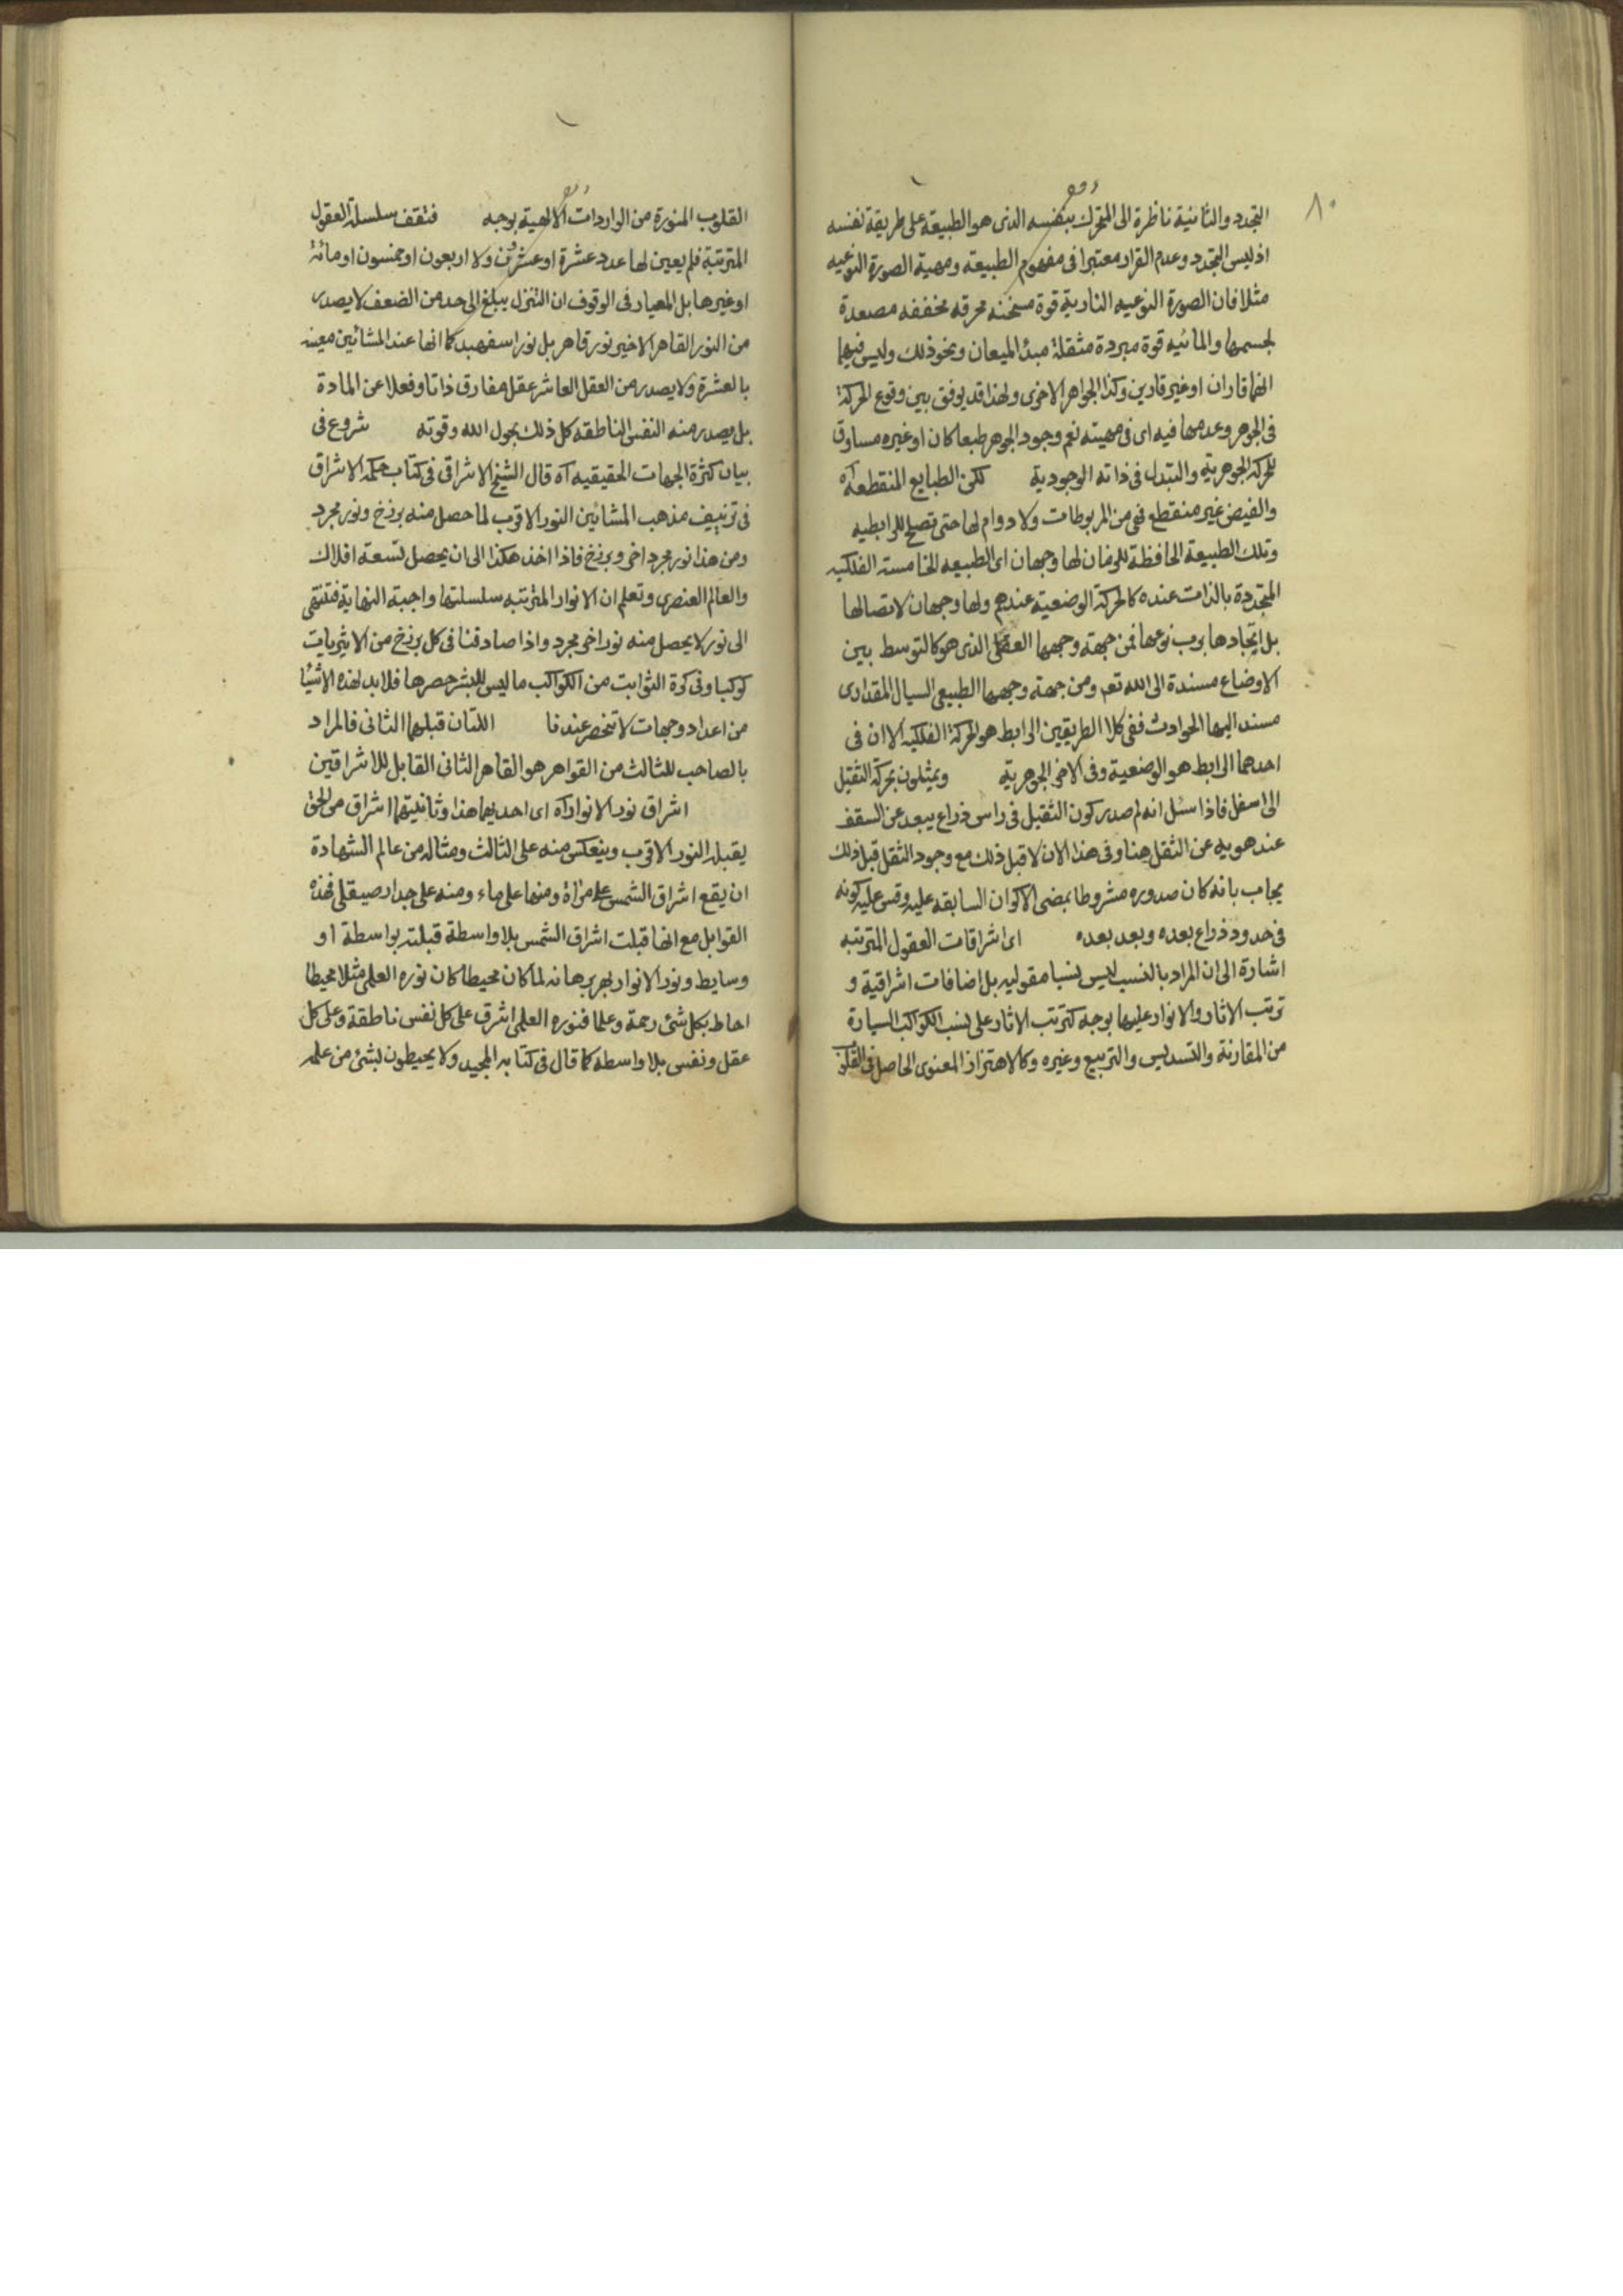 ٨٠
التجدد والثانية ناظرة الى المتحرك بنفسه الذى هو الطبيعة على طريقة نفسه
اذ ليس التجدد وعدم القرار معتبرا فى مفهوم الطبيعة ومهية الصورة النوعيه
مثلا فان الصورة النوعيه النارية قوة مسخنه محرقه مخففه مصعدة
لجسمها والمائيه قوة مبردة مثقلة مبدأ الميعان ونحو ذلك وليس فيهما
انهما قاران او غير قارين وكذا الجواهر الاخرى ولهذا قد يوفق بين وقوع الحركة
فى الجوهر وعدمها فيه اى فى مهيته نعم وجود الجوهر طبعا كان او غيره مساوق
للحركة الجوهرية والتبدل فى ذاته الوجودية لكن الطبايع المنقطعة آه
والفيض غير منقطع فهى من المربوطات ولا دوام لها حتى تصلح للرابطيه
وتلك الطبيعة الحافظة للزمان لها وجهان اى الطبيعه الخامسة الفلكيه
المتجددة بالذات عنده كالحركة الوضعية عندهم ولها وجهان لاتصالها
بل اتحادها برب نوعها فمن جهة وجهها العقلى الذى هو كالتوسط بين
الاوضاع مسندة الى الله تعه ومن جهة وجهها الطبيعى السيال المقدارى
مسند اليها الحوادث ففى كلا الطريقين الرابط هو الحركة الفلكيه الا ان فى
احدهما الرابط هو الوضعية وفى الاخر الجوهرية ويمثلون بحركة الثقيل
الى اسفل فاذا سئل انه لم صدر كون الثقيل فى راس ذراع يبعد عن السقف
عند هويه عن الثقل هنا وفى هذا الان لا قبل ذلك مع وجود الثقل قبل ذلك
يجاب بانه كان صدوره مشروطا بمضى الاكوان السابقه عليه وقس عليه كونه
فى حدود ذراع بعده وبعد بعده اى اشراقات العقول المترتبه
اشارة الى ان المراد بالنسب ليس نسبا مقوليه بل اضافات اشراقية و
ترتب الاثار والانوار عليها بوجه كترتب الاثار على نسب الكواكب السيارة
من المقارنة والتسديس والتربيع وغيره وكالاهتزاز المعنوى الحاصل فى
القلوب المنورة من الواردات الالهية بوجه فتقف سلسلة العقول
المترتبة فلم يعين لها عدد عشرة او عشرون ولا اربعون او خمسون او مائة
او غيرها بل المعيار فى الوقوف ان التنزل يبلغ الى حد من الضعف لا يصدر
من النور القاهر الاخير نور قاهر بل نور اسفهبد كما انها عند المشائين معينه
بالعشرة ولا يصدر من العقل العاشر عقل مفارق ذاتا وفعلا عن المادة
بل يصدر منه النفس الناطقه كل ذلك بحول الله وقوته شروع فى
بيان كثرة الجهات الحقيقيه آه قال الشيخ الاشراقى فى كتاب حكمة الاشراق
فى تزييف مذهب المشائين النور الاقرب لما حصل منه برزخ ونور مجرد
ومن هذا نور مجرد اخر وبرزخ فاذا اخذ هكذا الى ان يحصل تسعة افلاك
والعالم العنصرى وتعلم ان الانوار المترتبه سلسلتها واجبة النهاية فتنتهى
الى نور لا يحصل منه نور اخر مجرد واذا صادفنا فى كل برزخ من الاثيريات
كوكبا وفى كرة الثوابت من الكواكب ما ليس للبشر حصرها فلا بد لهذه الاشيا
من اعداد وجهات لا تنحصر عندنا اللتان قبلهما الثانى فالمراد
بالصاحب للثالث من القواهر هو القاهر الثانى القابل للاشراقين
اشراق نور الانوار آه اى احديهما هذا وثانيتهما اشراق من الحق
يقبله النور الاقرب وينعكس منه على الثالث ومثاله من عالم الشهادة
ان يقع اشراق الشمس على مرآة ومنها على ماء ومنه على جدار صيقلى فهذه
القوابل مع انها قبلت اشراق الشمس بلا واسطة قبلته بواسطة او
وسايط ونور الانوار بهر برهانه لما كان محيطا كان نوره العلمى مثلا محيطا
احاط بكل شئ رحمة وعلما فنوره العلمى اشرق على كل نفس ناطقة وعلى كل
عقل ونفس بلا واسطه كما قال فى كتابه المجيد ولا يحيطون بشئ من علمه